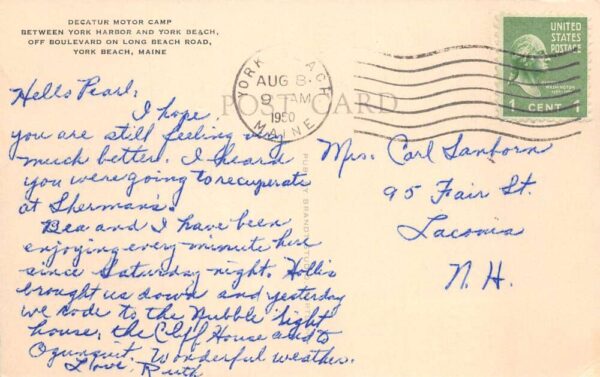 DECATUR MOTOR CAMP
BETWEEN YORK HARBOR AND YORK BEACH,
OFF BOULEVARD ON LONG BEACH ROAD,
YORK BEACH, MAINE
UNITED
STATES
POSTAGE
WASHINGTON
1 CENT 1
YORK BEACH
AUG 8
9 AM
1950
MAINE
POST CARD
Hello Pearl,
I hope
you are still feeling very
much better. I heard
you were going to recuperate
at Sherman's.
Bea and I have been
enjoying every minute here
since Saturday night. Hollis
brought us down and yesterday
we rode to the Nubble Light
house, the Cliff House and to
Ogunquit. Wonderful weather.
Love, Ruth
Mrs. Carl Sanborn
95 Fair St.
Laconia
N. H.